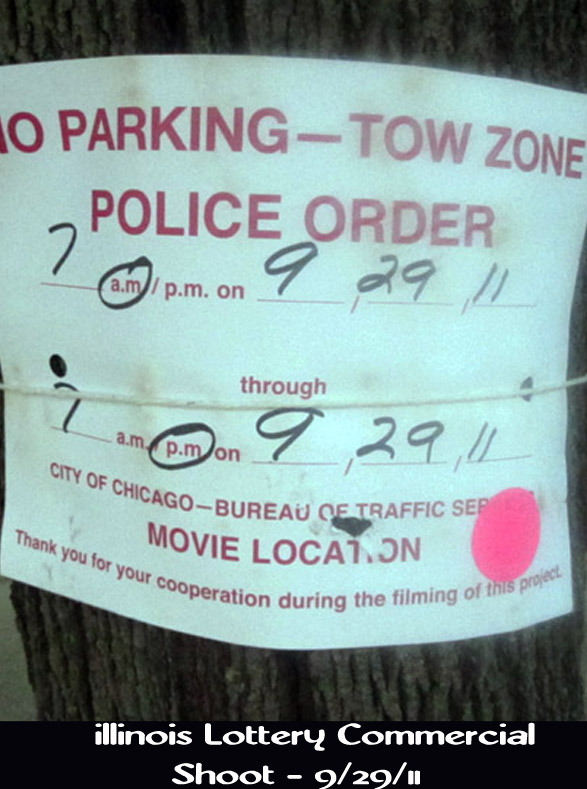 NO PARKING—TOW ZONE
POLICE ORDER
7 a.m./p.m. on 9, 29, 11
through
7 a.m./p.m. on 9, 29, 11
CITY OF CHICAGO—BUREAU OF TRAFFIC
MOVIE LOCATION
Thank you for your cooperation during the filming of this project.
illinois Lottery Commercial
Shoot - 9/29/11